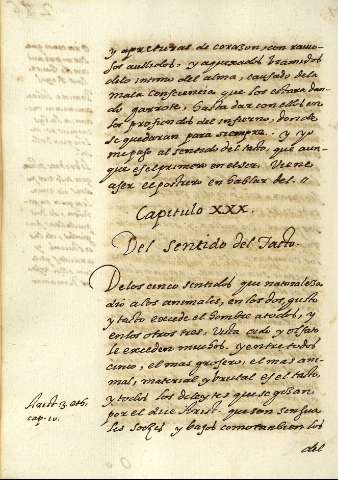 y apreturas de corazon, con rauio-
sos aullidos, y aquexados bramidos
delo intimo del alma, causado dela
mala Consciencia que los estara dan-
do garrote, hasta dar con ellos en
los profundos del infierno, donde
se quedaran para siempre. y yo
me paso al sentido del tacto, que aun-
que es el primero en el ser. Viene
aser el postrero en hablar del.
Capitulo XXX.
Del sentido del Tacto.
Delos cinco sentidos que naturaleza
dio a los animales, en los dos, gusto
y tacto excede el hombre a todos, y
en los otros tres. Vista oido y olfato
le exceden muchos. Y entre todos
cinco, el mas grosero, el mas ani-
mal, material y brutal es el tacto,
y todos los deleytes que se gozan
por el dice Arist. que son sensua
Arist. 3. eth.
cap. 10.
les soezes y bajos como tambien los
del